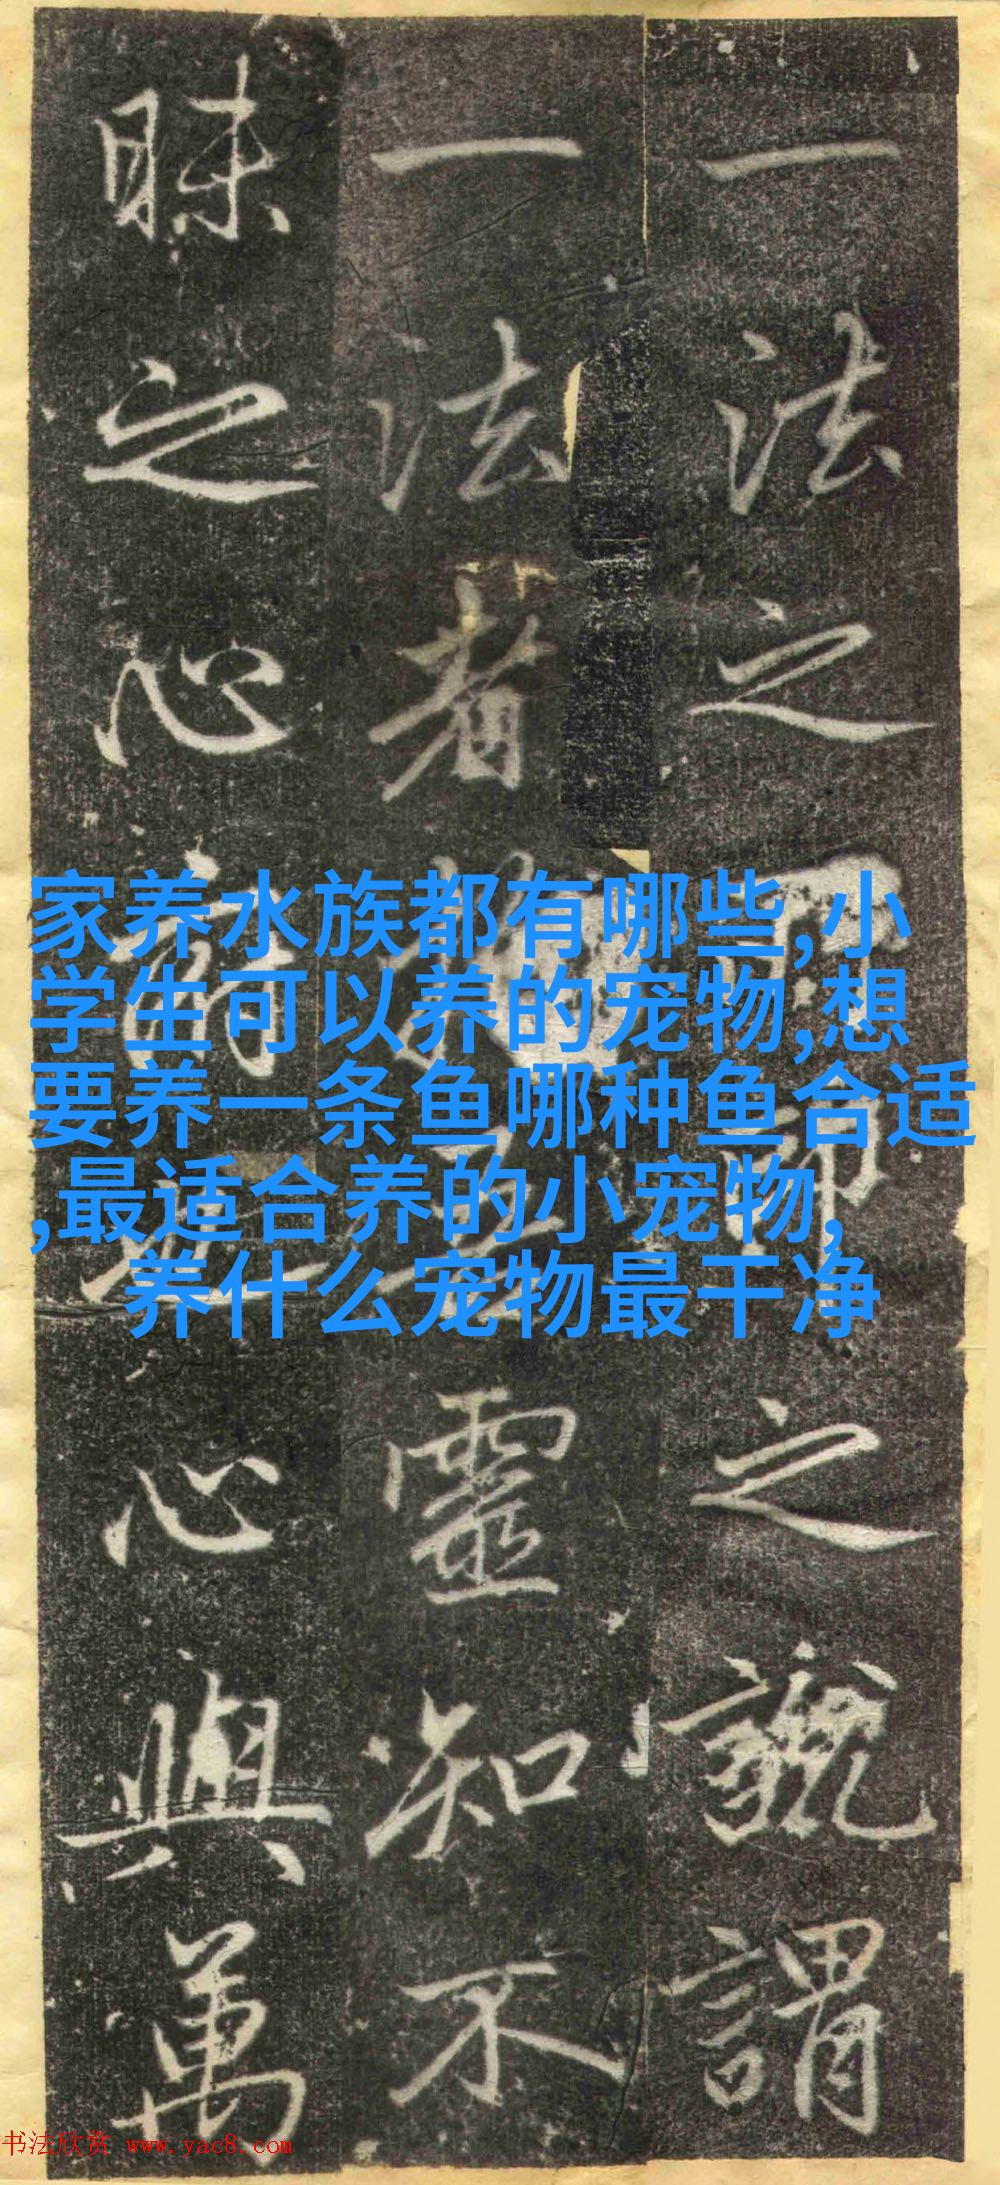 一法之
之說謂
一法者
靈知不
昧之心
心與萬
家养水族都有哪些,小
学生可以养的宠物,想
要养一条鱼哪种鱼合适
,最适合养的小宠物,
养什么宠物最干净
书法欣赏 www.yac8.com